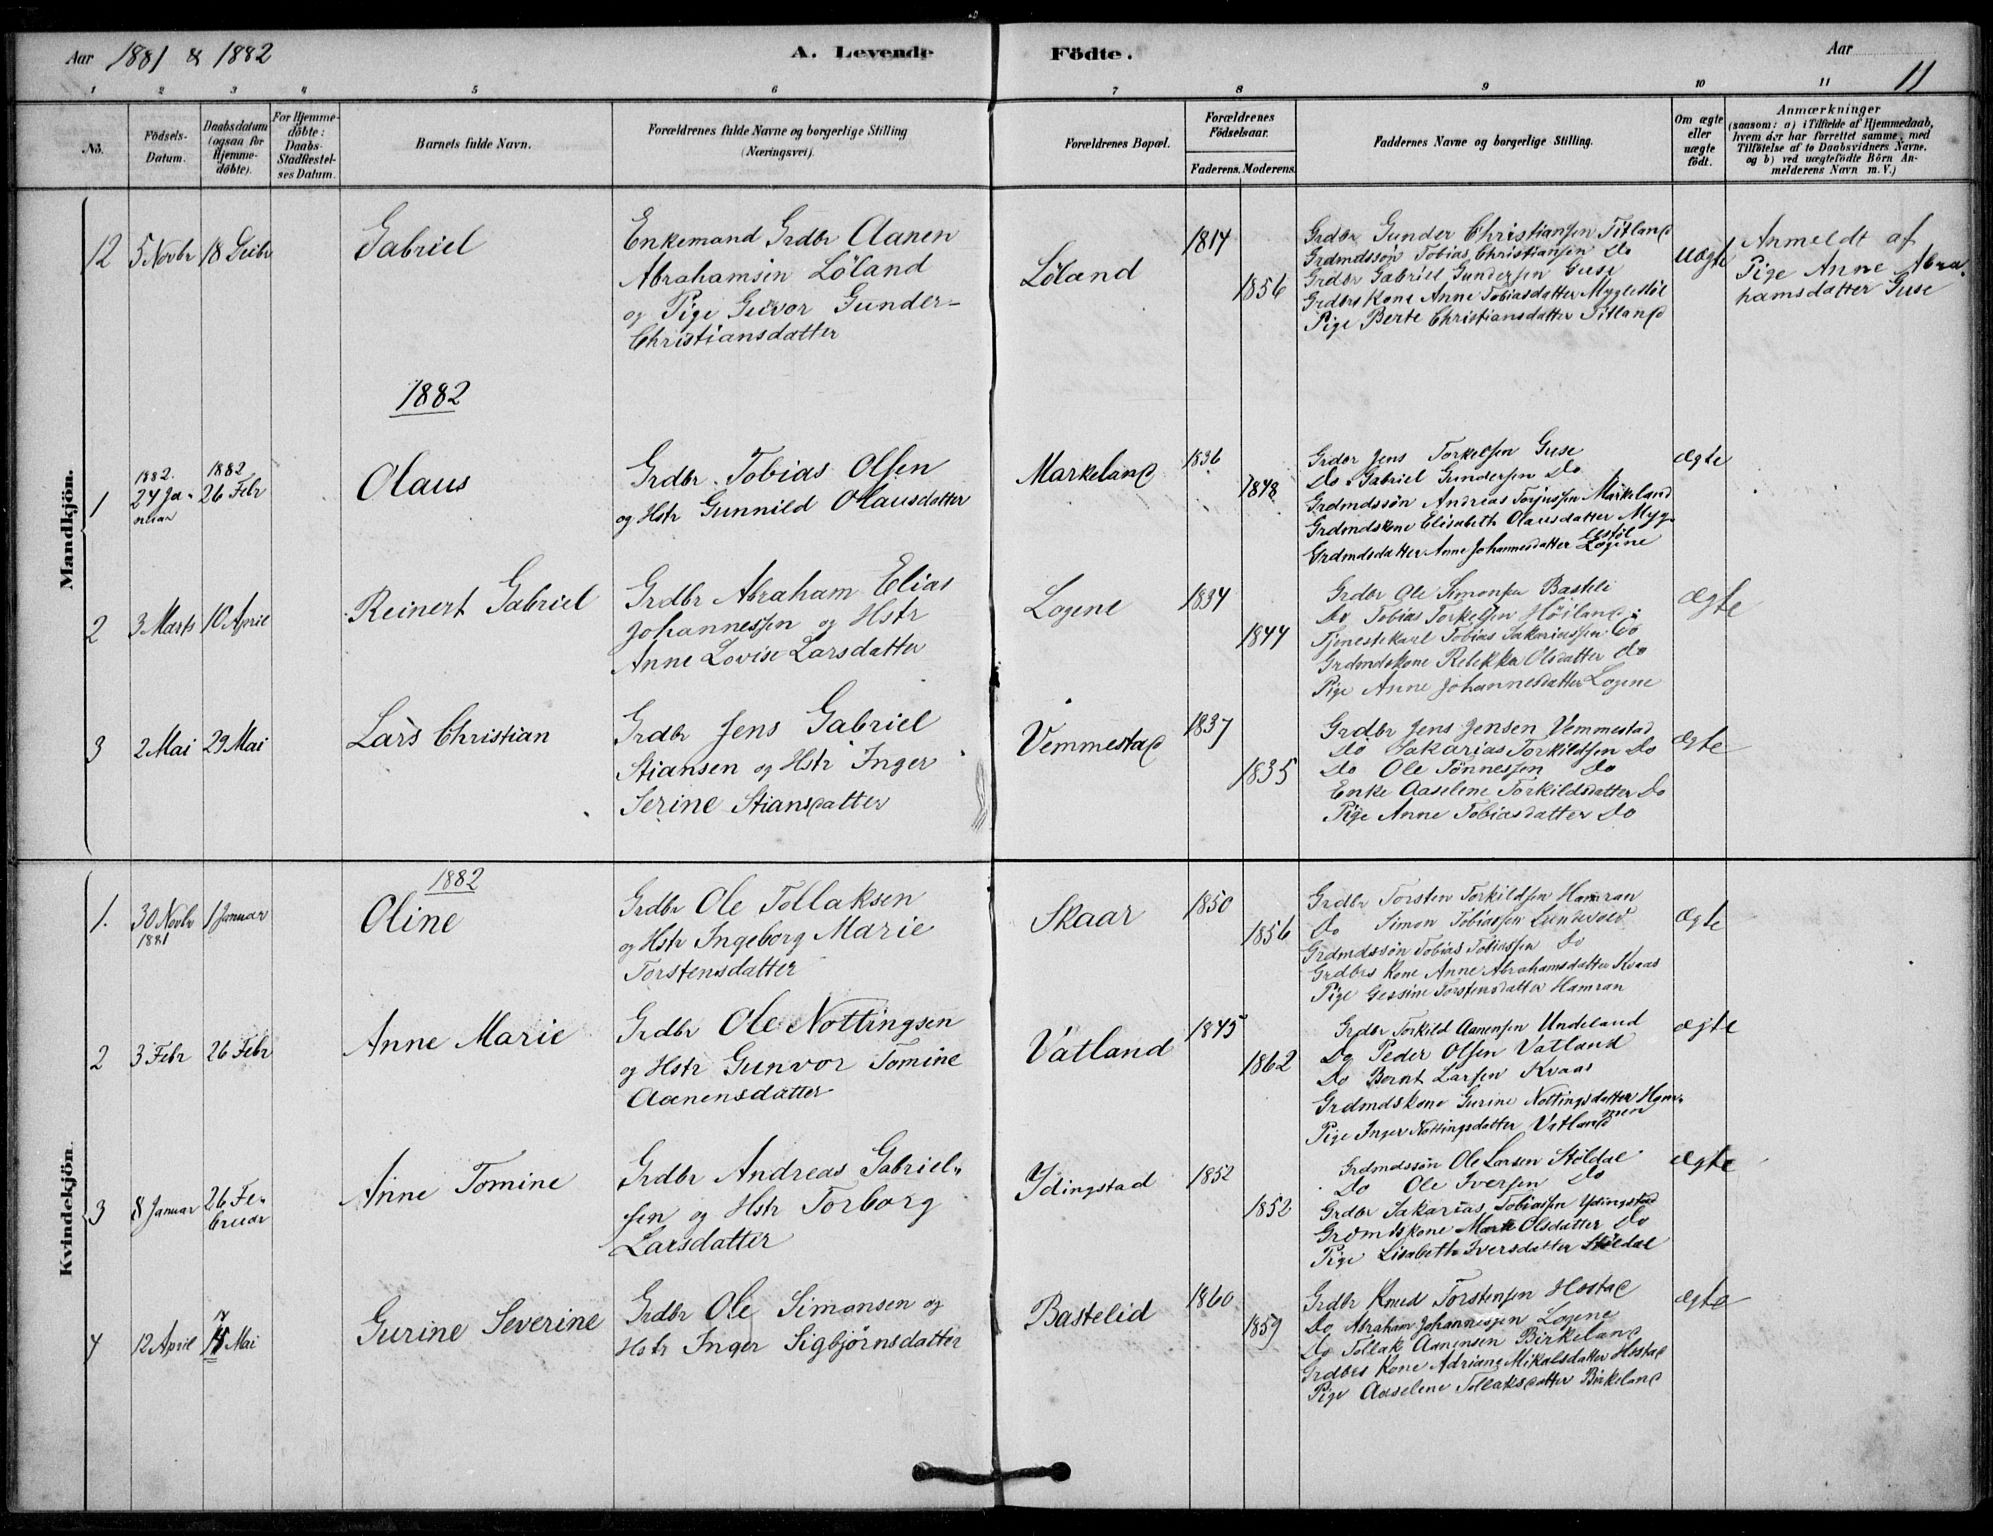 Aar 1881 & 1882
A. Levende Födte.
Aar
11
1 2 3 4 5 6 7 8 9 10 11
No.
Födsels-Datum.
Daabsdatum (ogsaa for Hjemme-döbte).
For Hjemme-döbte: Daabs-Stadfæstel-ses Datum.
Barnets fulde Navn.
Forældrenes fulde Navne og borgerlige Stilling (Næringsvei).
Forældrenes Bopæl.
Forældrenes Födselsaar.
Faderens. Moderens.
Faddernes Navne og borgerlige Stilling.
Om ægte eller uægte födt.
Anmærkninger
(saasom: a) i Tilfælde af Hjemmedaab,
hvem der har forrettet samme, med
Tilföielse af to Daabsvidners Navne.
og b) ved uægtefödte Börn An-
melderens Navn m. V.)
Mandkjön.
12 5 Novbr 18 Decbr
Gabriel
Enkemand Grdbr Aanen
Abrahamsen Löland
og Pige Gunvor Gunder-
Christiansdatter
Löland
1814
1856
Grdbr Gunder Christiansen Titland
Grdmdssön Tobias Christiansen Do
Grdbr Gabriel Gundersen Guse
Grdbrs Kone Anne Tobiasdatter Myglestöl
Pige Berte Christiansdatter Titland
Uægte
Anmeldt af
Pige Anne Abra-
hamsdatter Guse
1882
1
1882. 24 Ja-
nuar
1882
26 Febr
Olaus
Grdbr. Tobias Olsen
og Hstr Gunnild Olausdatter
Markeland
1836
1848
Grdbr Jens Torkelsen Guse
Do Gabriel Gundersen Do
Grdmdssön Andreas Torjussen Markeland
Grdmdskone Elisabeth Olausdatter Myg-
lestöl
Grdmdsdatter Anne Johannesdatter Logene
ægte
2 3 Marts 10 April
Reinert Gabriel
Grdbr Abraham Elias
Johannessen og Hstr
Anne Lovise Larsdatter
Logene
1834
1844
Grdbr Ole Simonsen Basteli
Do Tobias Torkelsen Höiland
Tjenestekarl Tobias Sakariassen Do
Grdmdskone Rebekka Olsdatter Do
Pige Anne Johannesdatter Logene
Ægte
3 2 Mai 29 Mai
Lars Christian
Grdbr Jens Gabriel
Stiansen og Hstr Inger
Serine Stiansdatter
Vemmestad
1837
1835
Grdbr Jens Jensen Vemmestad
Do Sakarias Torkildsen Do
Do Ole Tönnessen Do
Enke Aaselene Torkildsdatter Do
Pige Anne Tobiasdatter Do
Ægte
Kvindekjön
1882
1. 30 Novbr 1 Januar
1881
Oline
Grdbr Ole Tollaksen
og Hstr Ingeborg Marie
Torstensdatter
Skaar
1850
1856
Grdbr Torsten Torkildsen Hamran
Do Simon Tobiassen Lundevold
Grdmdssön Tobias Tobiassen Do
Grdbrs Kone Anne Abrahamsdatter Kvaas
Pige Gessine Torstensdatter Hamran
Ægte
2 3 Febr 26 Febr
Anne Marie
Grdbr Ole Nottingsen
og Hstr Gunvor Tomine
Aanensdatter
Vatland
1845
1862
Grdbr Torkild Aanensen Undeland
Do Peder Olsen Vatland
Do Bernt Larsen Kvaas
Grdmdskone Gurine Nottingsdatter Ham-
ren
Pige Inger Nottingsdatter Vatland
ægte
3 8 Januar 26 Fe-
bruar
Anne Tomine
Grdbr Andreas Gabriel-
sen og Hstr Torborg
Larsdatter
Ydingstad
1852
1852
Grdmdssön Ole Larsen Stöldal
Do Ole Iversen Do
Grdbr Sakarias Tobiassen Ydingstad
Grdmdskone Marte Olsdatter Do
Pige Lisabeth Iversdatter Stöldal
ægte
4 12 April
17
Mai
Gurine Severine
Grdbr Ole Simonsen og
Hstr Inger Sigbjörnsdatter
Bastelid
1860
1859
Grdbr Knud Torstensen Hestad
Do Abraham Johannessen Logene
Do Tollak Aanensen Birkeland
Grdbrs Kone Adriane Mikalsdatter Hestad
Pige Aaselene Tollaksdatter Birkeland
ægte